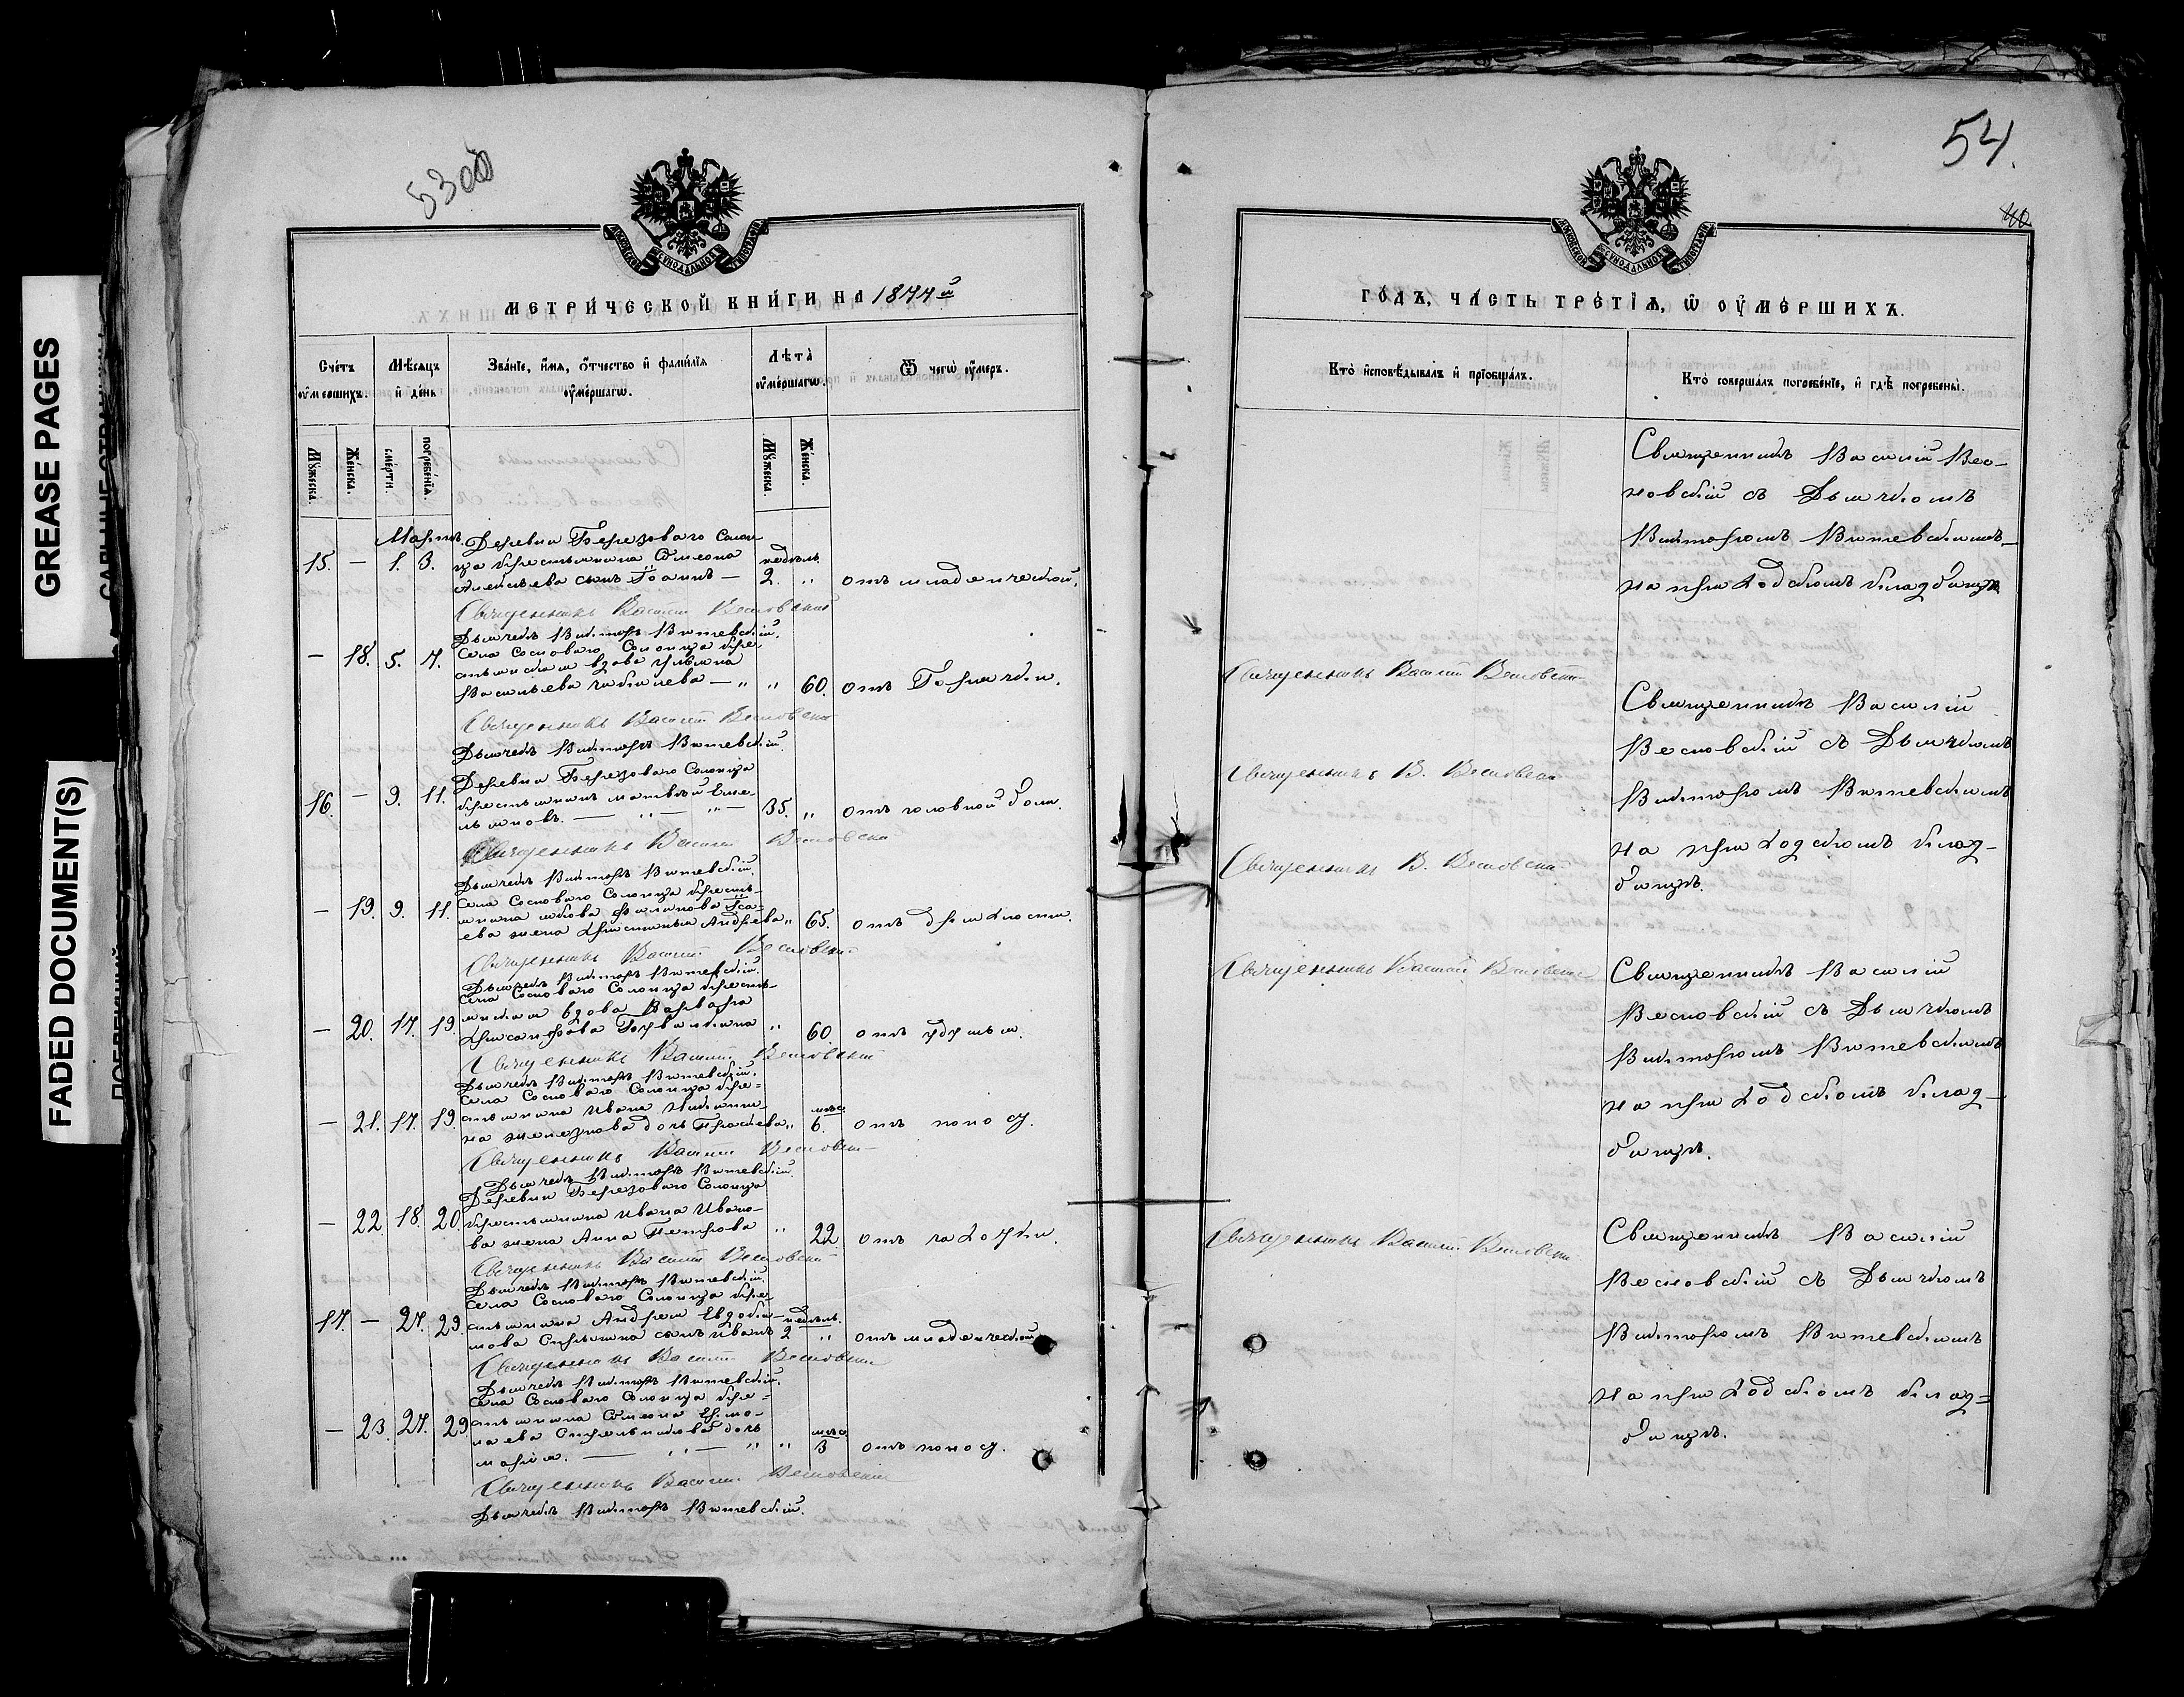 GREASE PAGES
FADED DOCUMENT(S)
53об
МЕТРИ́ЧЕСКОЙ КНИ́ГИ НА 1877й
Сче́тъ ᲂу҆ме́ршихъ.
Мѣ́сяцъ и҆ де́нь
Зва́нїе, и҆́мя, ѻ҆́тчество и҆ фами́лїя ᲂу҆ме́ршагѡ.
Лѣта̀ ᲂу҆ме́ршагѡ.
Ѿ чегѡ̀ ᲂу҆́меръ.
Мꙋ́жеска.
Же́нска.
сме́рти.
погребе́нїя.
Мꙋ́жеска.
Же́нска.
Мартъ.
15. — 1. 3.
Деревни Березоваго Солон
ца крестьянина Симеона
Алексѣева сынъ Іоаннъ —
недѣль
2. „
отъ младенческой.
Священникъ Василій Весновскій
Дьячекъ Викторъ Витевскій.
— 18. 5. 7.
Села Сосноваго Солонца кре-
стьянская вдова Ульяна
Васильева — „ „ 60. отъ Горячки.
Священникъ Василій Весновскій
Дьячекъ Викторъ Витевскій.
16. — 9. 11.
Деревни Березоваго Солонца
крестьянинъ Матвѣй Еме-
льяновъ. — „ — „ — 35. „ отъ головной боли.
Священникъ Василій Весновскій
Дьячекъ Викторъ Витевскій.
— 19. 9. 11.
Села Сосноваго Солонца кресть-
янина Якова Филипова Иса-
ева жена Христинья Андреева „ 65. отъ дряхлости.
Священникъ Василій Весновскій
Дьячекъ Викторъ Витевскій.
— 20. 17. 19.
Села Сосноваго Солонца кресть-
янская вдова Варвара
Хрисанфова „ 60. отъ удушья.
Священникъ Василій Весновскій
Дьячекъ Викторъ Витевскій.
— 21. 17. 19.
Села Сосноваго Солонца кре-
стьянина Ивана Никити-
на дочь „
мѣс.
6. отъ поносу.
Священникъ Василій Весновскій
Дьячекъ Викторъ Витевскій.
— 22. 18. 20.
Деревни Березоваго Солонца
крестьянина Ивана Ивано-
ва жена Анна Петрова „ 22 отъ чахотки.
Священникъ Василій Весновскій
Дьячекъ Викторъ Витевскій.
17. — 27. 29.
Села Сосноваго Солонца кре-
стьянина Андрея Евдоки-
мова сынъ Иванъ
недѣль.
2 „ отъ младенческой
Священникъ Василій Весновскій
Дьячекъ Викторъ Витевскій.
— 23. 27. 29.
Села Сосноваго Солонца кре-
стьянина Симеона Ермо-
лаева Стрельникова дочь
Марія. — „ — „ „
мѣс.
3 отъ поносу.
Священникъ Василій Весновскій
Дьячекъ Викторъ Витевскій.
54.
40
ГО́ДЪ, ЧА́СТЬ ТРЕ́ТЇѦ, Ѡ҆ ОУ҆МЕ́РШИХЪ.
Кто̀ и҆сповѣ́дывалъ и҆ прїѡбща́лъ.
Кто̀ соверша́лъ погребе́нїе, и҆ гдѣ̀ погребены̀.
Священникъ Василій Вес-
новскій съ Дьячкомъ
Викторомъ Витевскимъ
на приходскомъ кладбищѣ
Священникъ Василій Весновскій
Священникъ Василій
Весновскій съ Дьячкомъ
Викторомъ Витевскимъ
на приходскомъ клад-
бищѣ.
Священникъ В. Весновскій
Священникъ В. Весновскій
Священникъ Василій Весновскій
Священникъ Василій
Весновскій съ Дьячкомъ
Викторомъ Витевскимъ
на приходскомъ клад-
бищѣ.
Священникъ Василій Весновскій
Священникъ Василій
Весновскій съ Дьячкомъ
Викторомъ Витевскимъ
на приходскомъ клад-
бищѣ.